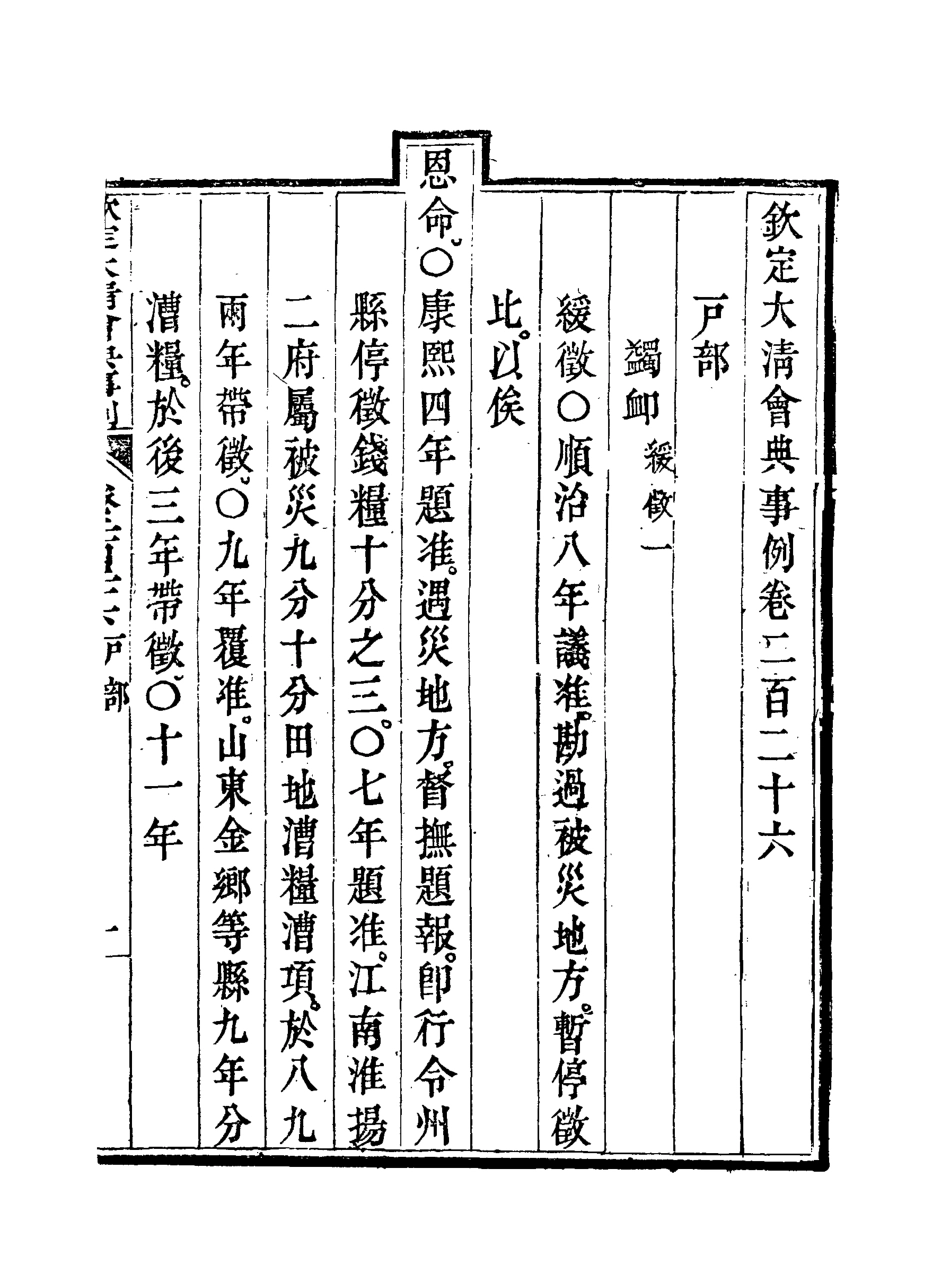 欽定大清會典事例卷二百二十六
戸部
蠲卹 緩徵一
緩徵○順治八年議准。勘過被災地方。暫停徵
比。以俟
恩命。○康熙四年題准。遇災地方。督撫題報。卽行令州
縣停徵錢糧十分之三。○七年題准。江南淮揚
二府屬被災九分十分田地漕糧漕項。於八九
兩年帶徵。○九年覆准。山東金鄉等縣九年分
漕糧。於後三年帶徵○十一年
欽定大清會典事例 戸部